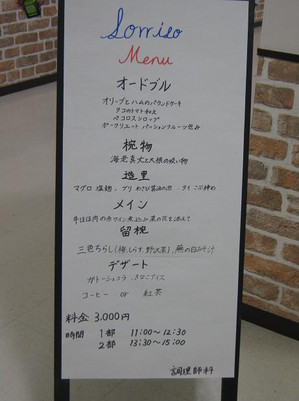 Sorriso
Menu
オードブル
オリーブとハムのパウンドケーキ
タコのトマト和え
ペコロスシロップ
ポークリエット パッションフルーツ包み
椀物
海老真丈と大根の吸い物
造里
マグロ 塩麹、ブリ わさび醤油の
メイン
牛ほほ肉の赤ワイン煮込み 菜の花を添えて
留椀
三色ちらし(梅,しらす,野沢菜),蕪の白みそ汁
デザート
ガトーショコラ きなこアイス
コーヒー or 紅茶
料金 3,000円
時間 1部 11:00〜12:30
2部 13:30〜15:00
調理師科